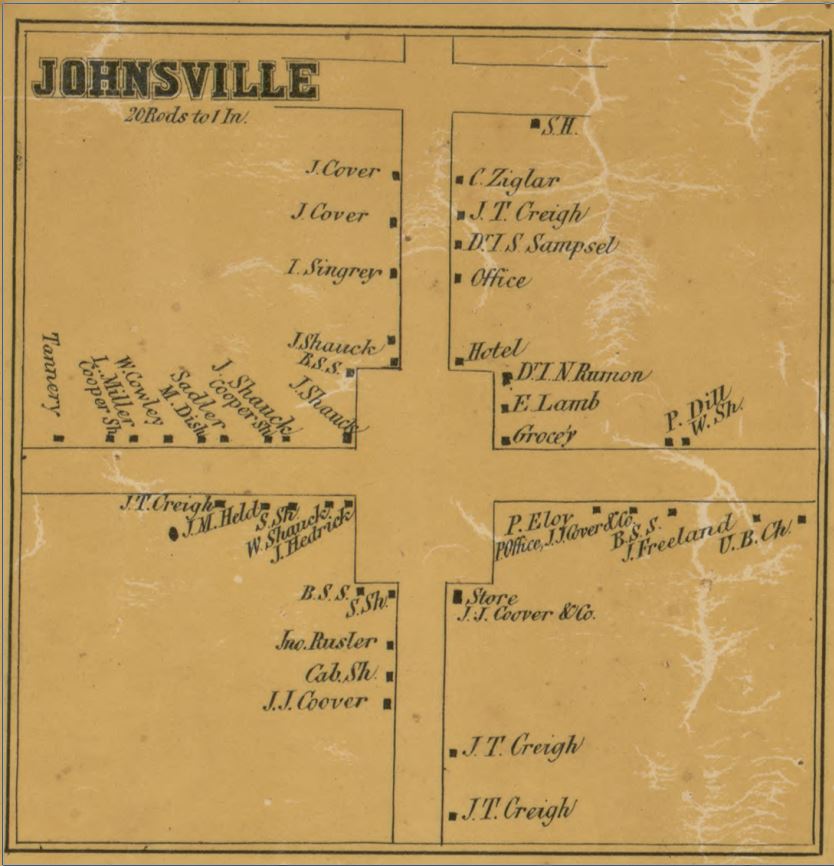 JOHNSVILLE
20 Rods to 1 In.
S.H.
J. Cover
C. Ziglar
J. Cover
J. T. Creigh
Dr. I. S. Sampsel
I. Singrey
Office
J. Shauck
B.S.S.
Hotel
Dr. I. N. Rumon
E. Lamb
Groce'y
P. Dill
W. Sh.
Tannery
Cooper Sh.
L. Miller
W. Cowley
M. Dish
Sadler
Cooper Sh.
J. Shauck
J. Shauck
J. T. Creigh
J. M. Held
S. Sh.
W. Shauck
J. Hedrick
P. Eloy
P. Office, J. J. Cover & Co.
B. S. S.
J. Freeland
U. B. Ch.
B. S. S.
S. Sh.
Store
J. J. Coover & Co.
Jno. Rusler
Cab. Sh.
J. J. Coover
J. T. Creigh
J. T. Creigh